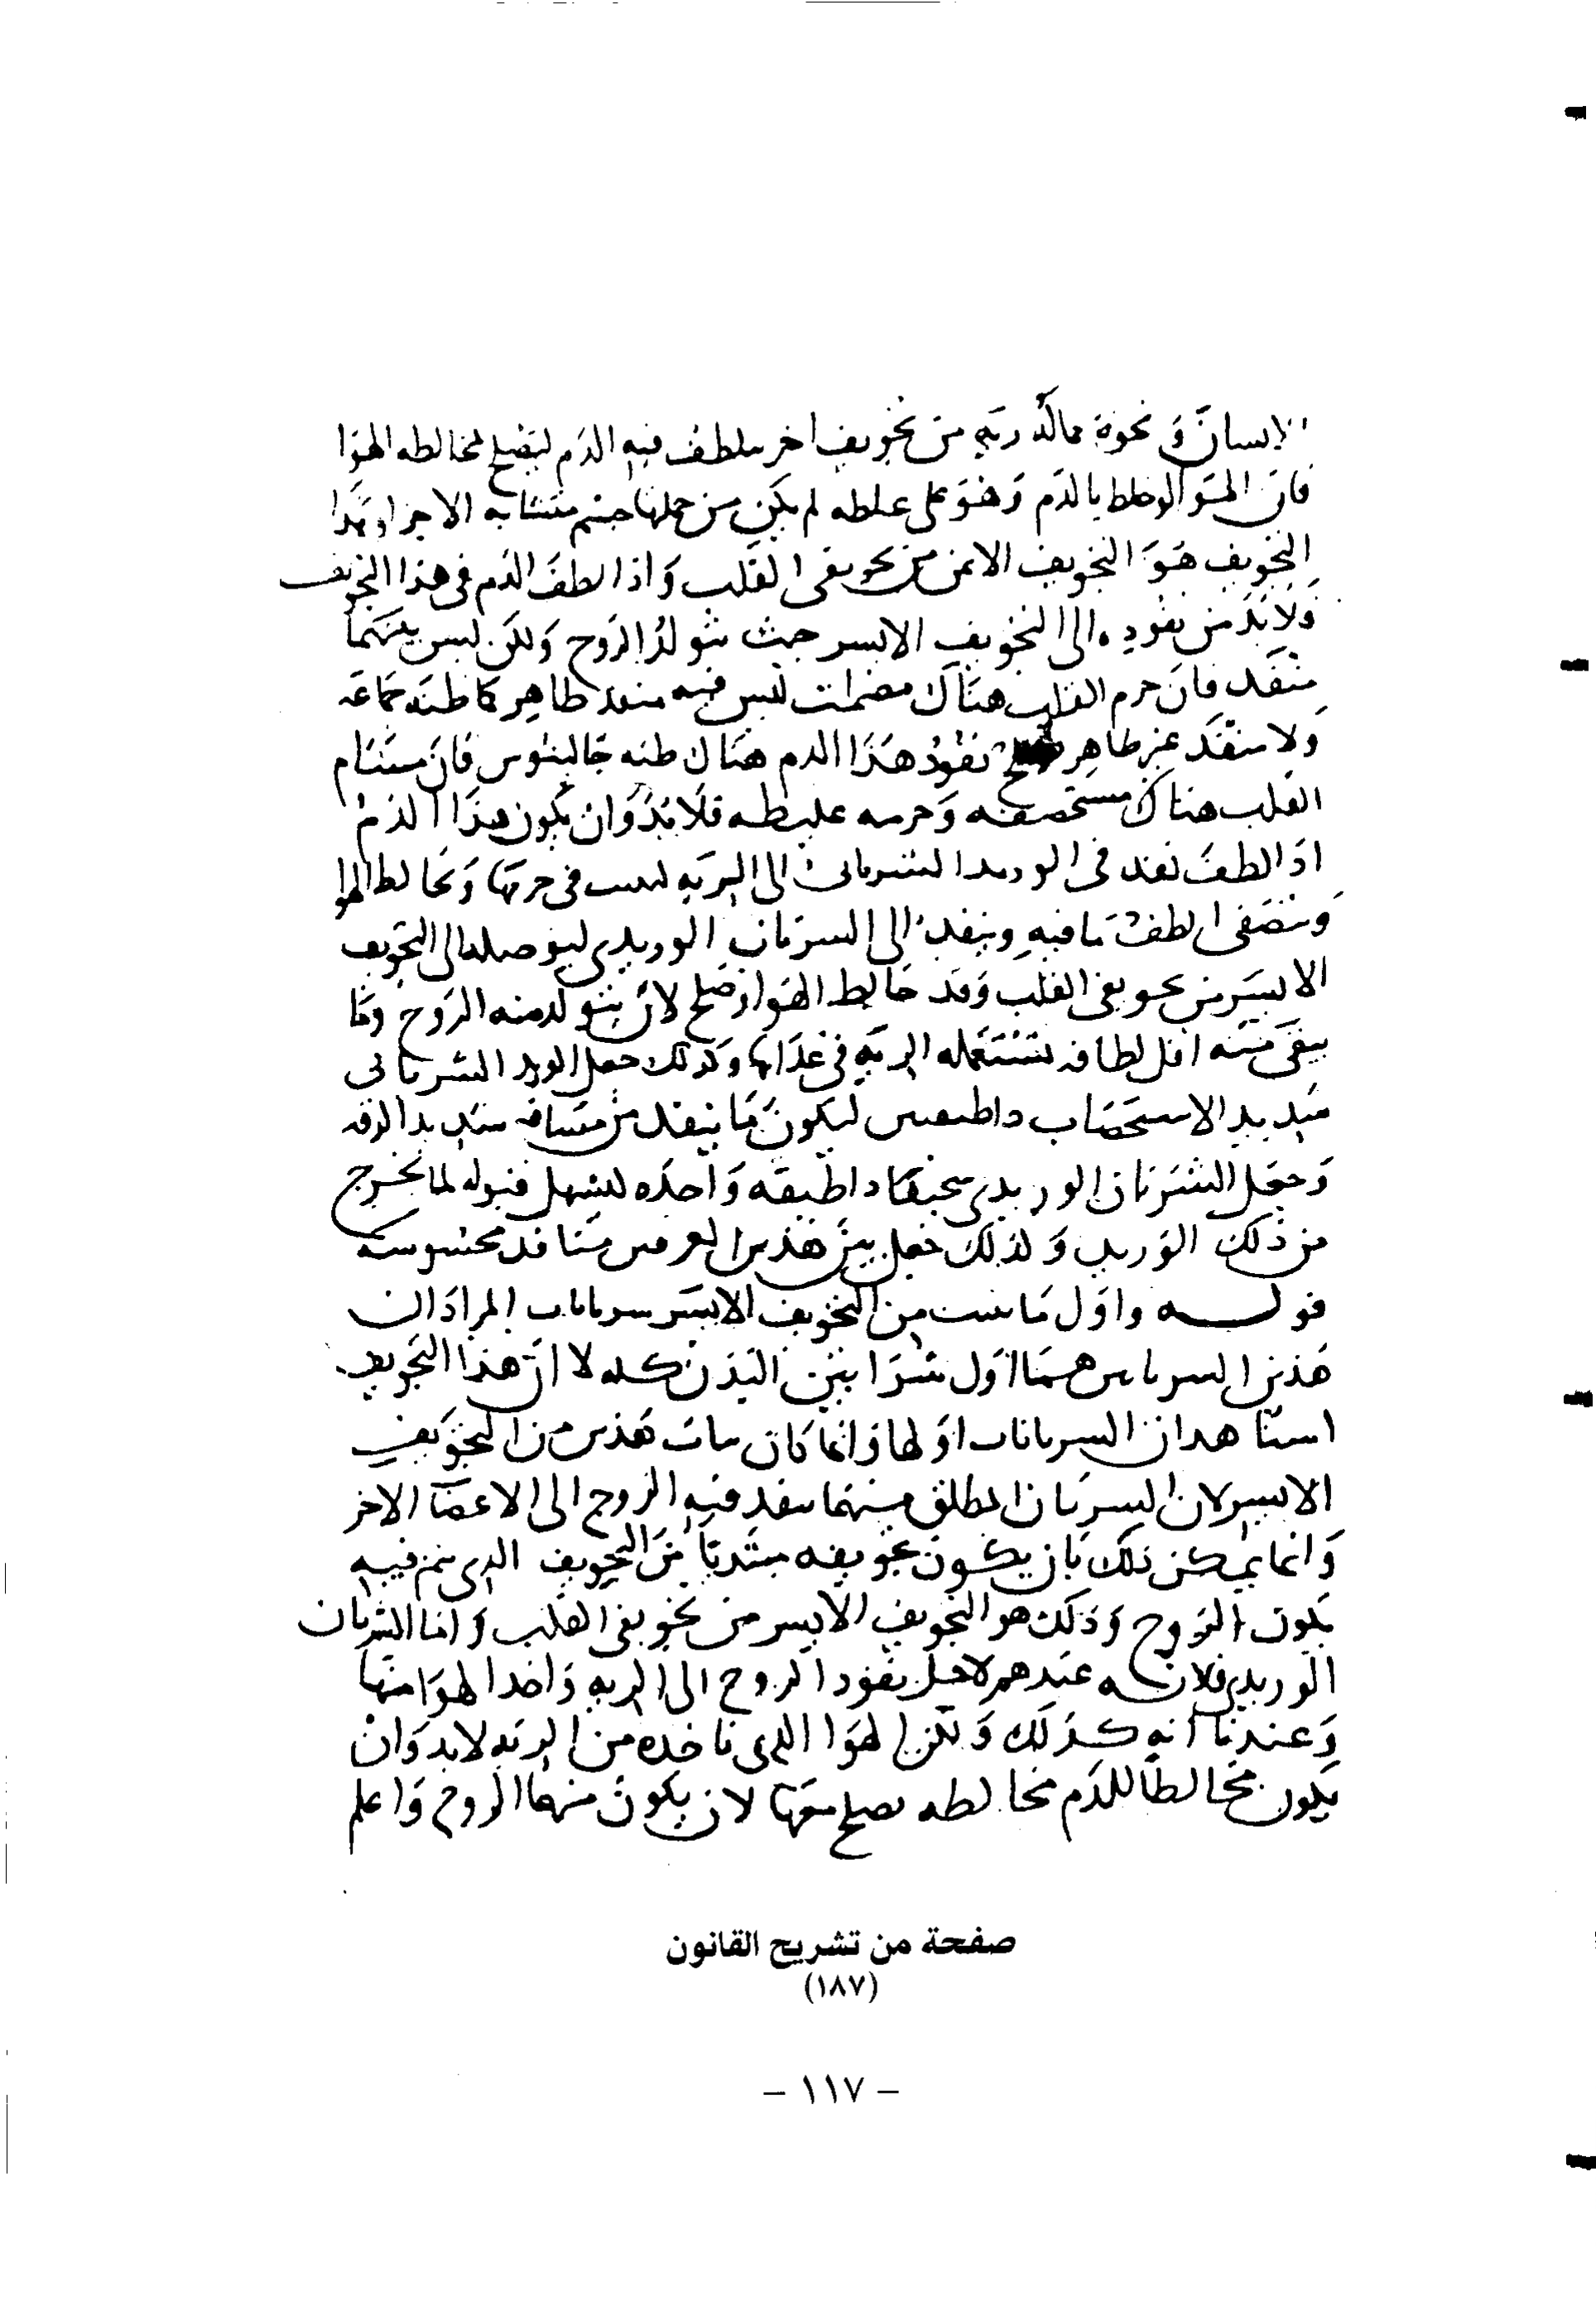 الانسان و نحوه مما له رئة من تجويف اخر يلطف فيه الدم ليصلح لمخالطه الهوا
فان الهوا لو خلط بالدم وهو على غلظه لم يكن من جملتها جسم متشابه الاجزا وهذا
التجويف هو التجويف الايمن من تجويفى القلب واذا لطف الدم فى هذا التجويف
ولابد من نفوده الى التجويف الايسر حيث يتولد الروح ولكن ليس بينهما
منفذ فان جرم القلب هناك مصمت ليس فيه منفذ ظاهر كما ظنه جماعه
ولا منفذ غير ظاهر يصلح لنفوذ هذا الدم هناك كما ظنه جالينوس فان مسام
القلب هناك مستحصفه وجرمه غليظ فلا بد وان يكون هذا الدم
اذا لطف نفذ فى الوريد الشريانى الى الريه لينبث فى جرمها ويخالط الهوا
ويتصفى الطف ما فيه وينفذ الى الشريان الوريدى ليوصله الى التجويف
الايسر من تجويفى القلب وقد خالط الهوا وصلح لان يتولد منه الروح وما
يبقى منه اقل لطافه تستعمله الريه فى غذائها وكذلك جعل الوريد الشريانى
شديد الاستحصاف ذا طبقتين ليكون ما ينفذ من مسامه شديد الرقه
وجعل الشريان الوريدى سخيفا ذا طبقه واحده ليسهل قبوله لما يخرج
من ذلك الوريد ولذلك جعل بين هذين العرقين منافذ محسوسه
قوله واول ما ينبت من التجويف الايسر شريانان المراد ان
هذين الشريانين هما اول شرايين البدن كله لا ان هذا التجويف
هذان الشريانان اولها وانما كان نبات هذين من التجويف
الايسر لان الشريان المطلق منهما ينفذ فيه الروح الى الاعضا الاخر
وانما يمكن ذلك بان يكون تجويفه مبتديا من التجويف الذى يتم فيه
تكون الروح وذلك هو التجويف الايسر من تجويفى القلب واما الشريان
الوريدى فلانه عندهم لاجل نفوذ الروح الى الريه واخذ الهوا منها
وعندنا انه كذلك ولكن الهوا الذى ناخذه من الريه لابد وان
يكون مخالطا للدم مخالطه يصلح معها لان يكون منهما الروح واعلم
صفحة من تشريح القانون
(١٨٧)
- ١١٧ -